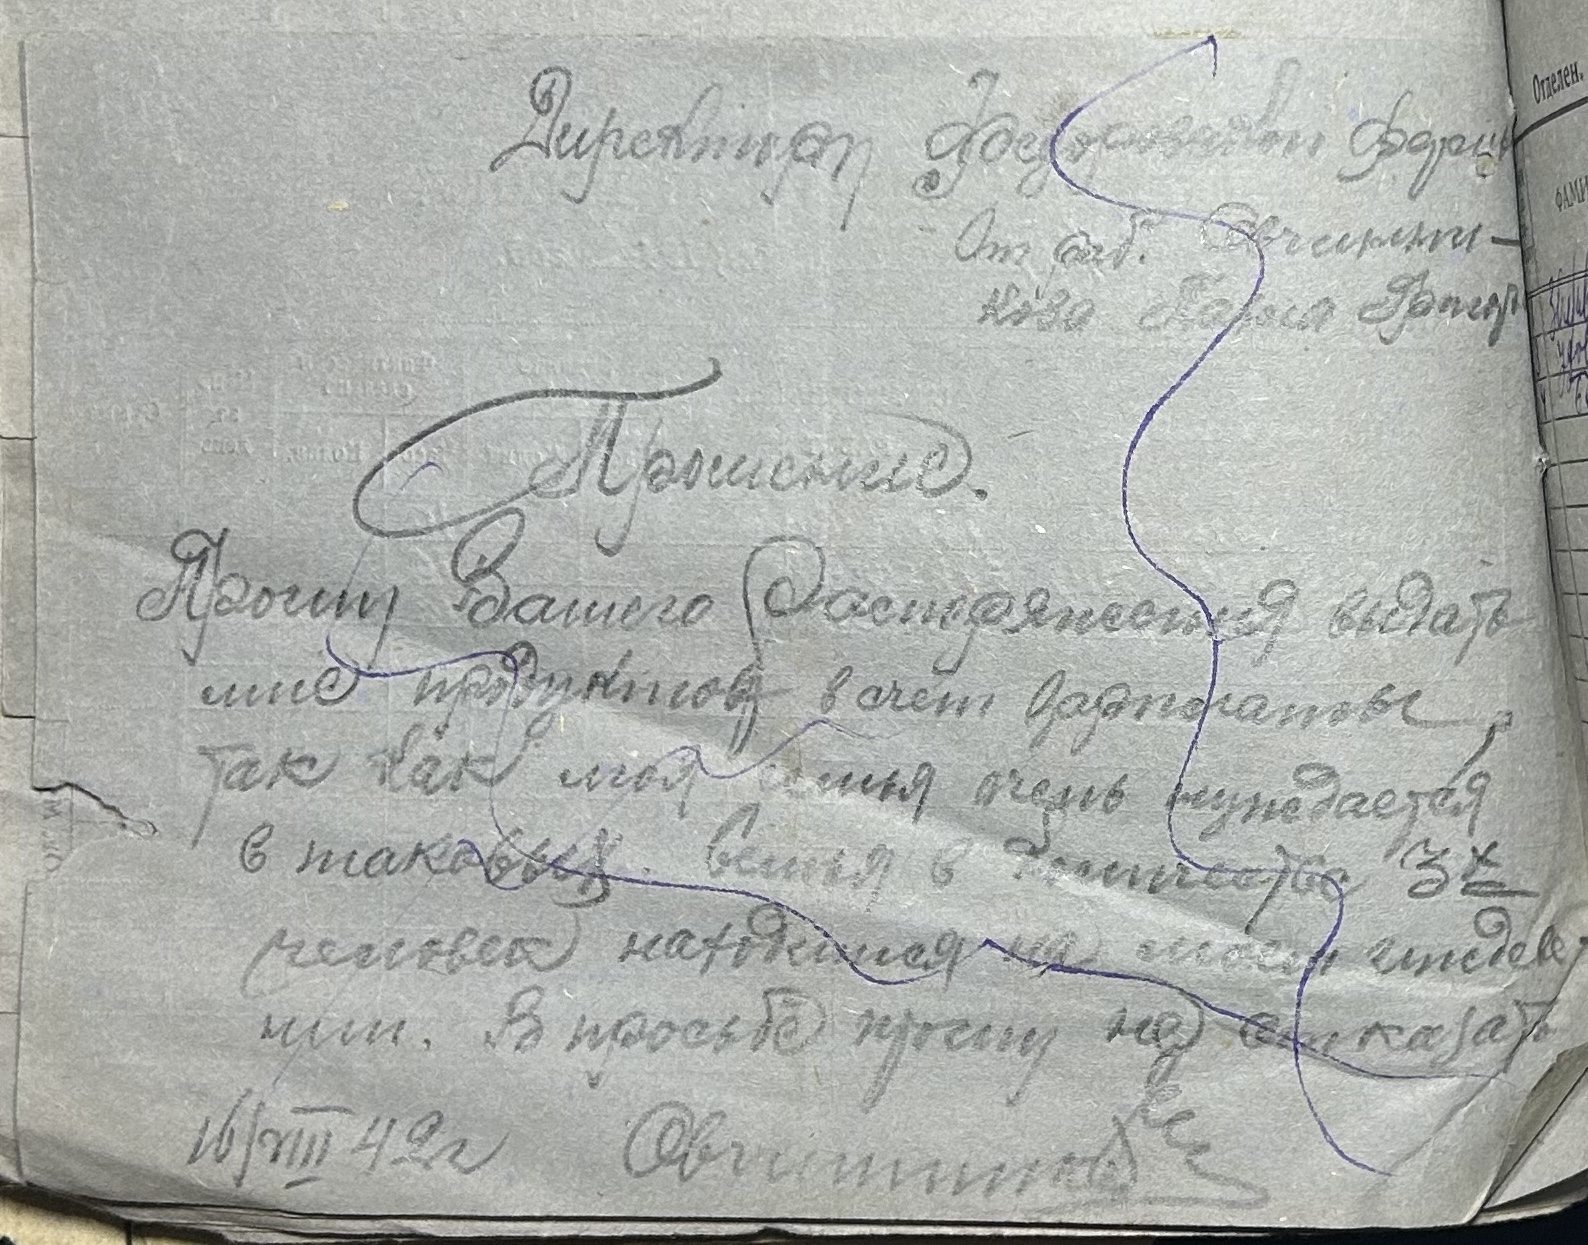 Директору
От раб. Овчинни-
кова Павла Григор
Прошение.
Прошу Вашего Распоряжения выдать
мне продуктов в счет Зарплаты,
так как моя семья очень нуждается
в таковых. Семья в количестве 3х
человек находится на моем иждеве-
нии. В просьбе прошу не отказать
16/VIII 42 г Овчинников
Отделен.